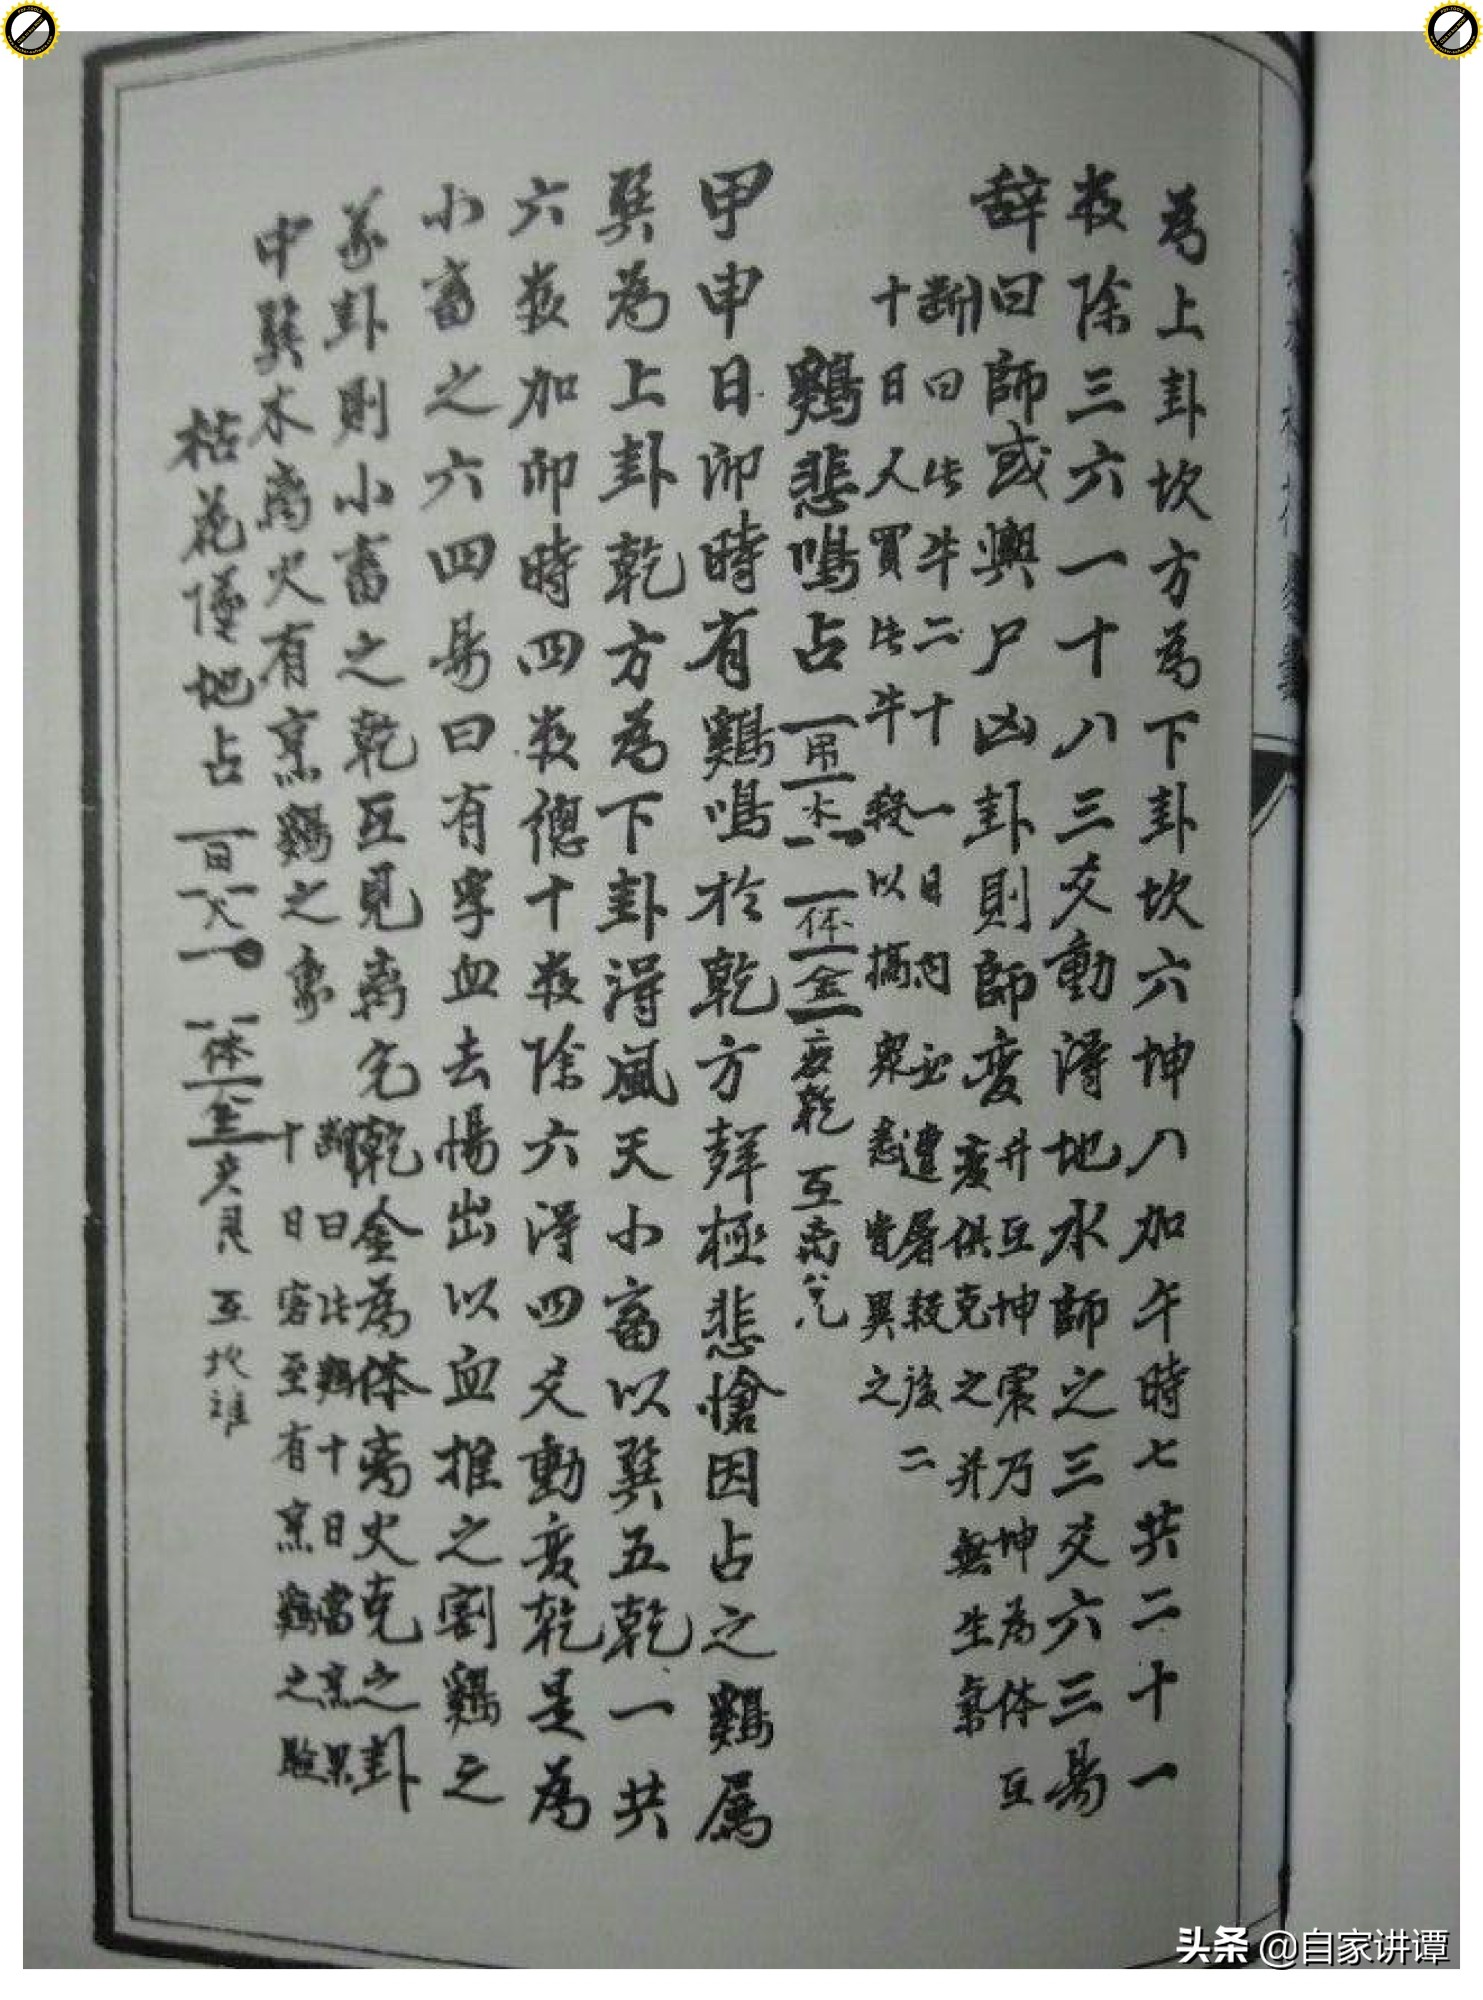 為上卦坎方為下卦坎六坤八加午時七共二十一
数除三六一十八三爻動得地水師之三爻六三易
辞曰師或輿尸凶卦則師变
井互坤震乃坤為体互
变俱克之并無生氣
断曰此牛二十一日內必遭屠殺後二
十日人買此牛殺以犒衆悉皆異之
鷄悲鳴占 用木 体金 变乾 互离兌
甲申日卯時有鷄鳴於乾方聲極悲愴因占之鷄属
巽為上卦乾方為下卦得風天小畜以巽五乾一共
六数加卯時四数總十数除六得四爻動变乾是為
小畜之六四易曰有孚血去惕出以血推之割鷄之
象卦則小畜之乾互見离兌乾金為体离火克之卦
中巽木离火有烹鷄之象
断曰此鷄十日當烹果
十日客至有烹鷄之驗
枯花墜地占 用火 体金 变艮 互坎離
头条 @自家讲谭